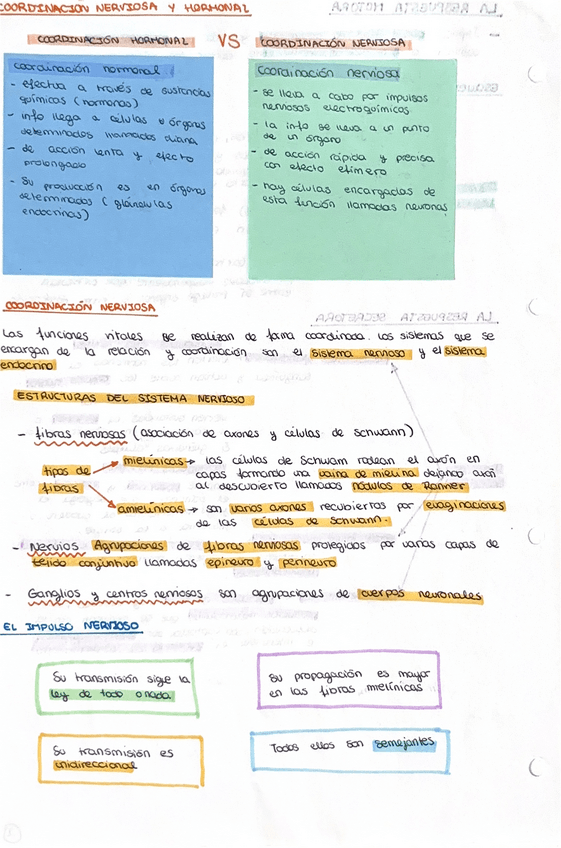 COORDINACION NERVIOSA Y HORMONAL
COORDINACIÓN HORMONAL VS COORDINACIÓN NERVIOSA
coordinación hormonal
- efectua a través de sustancias
químicas (hormonas)
- info llega a células u órganos
determinados llamados diana
- de acción lenta y efecto
prolongado
- Su producción es en órganos
determinados (glándulas
endocrinas)
coordinación nerviosa
- se lleva a cabo por impulsos
nerviosos electroquímicos
- la info se lleva a un punto
de un órgano
- de acción rápida y precisa
con efecto efímero
- hay células encargadas de
esta función llamadas neuronas
COORDINACIÓN NERVIOSA
Las funciones vitales se realizan de forma coordinada. Los sistemas que se
encargan de la relación y coordinación son el sistema nervioso y el sistema
endocrino
ESTRUCTURAS DEL SISTEMA NERVIOSO
- fibras nerviosas (asociación de axones y células de Schwann)
tipos de
fibras
mielínicas → las células de Schwam rodean el axón en
capas formando una vaina de mielina dejando axón
al descubierto llamados nódulos de Ranner
amielínicas → son varios axones recubiertos por evaginaciones
de las células de Schwann.
- Nervios Agrupaciones de fibras nerviosas protegidos por varias capas de
tejido conjuntivo llamadas epineuro y perineuro
- Ganglios y centros nerviosos son agrupaciones de cuerpos neuronales
EL IMPULSO NERVIOSO
Su transmisión sige la
ley de todo o nada
Su propagación es mayor
en las fibras mielínicas
Su transmisión es
unidireccional
Todos ellos son semejantes